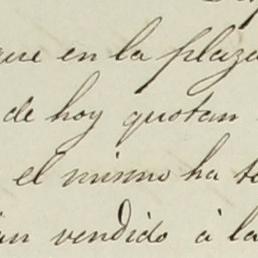 que en la plaza
de hoy quotan
el mismo ha
vendido á la